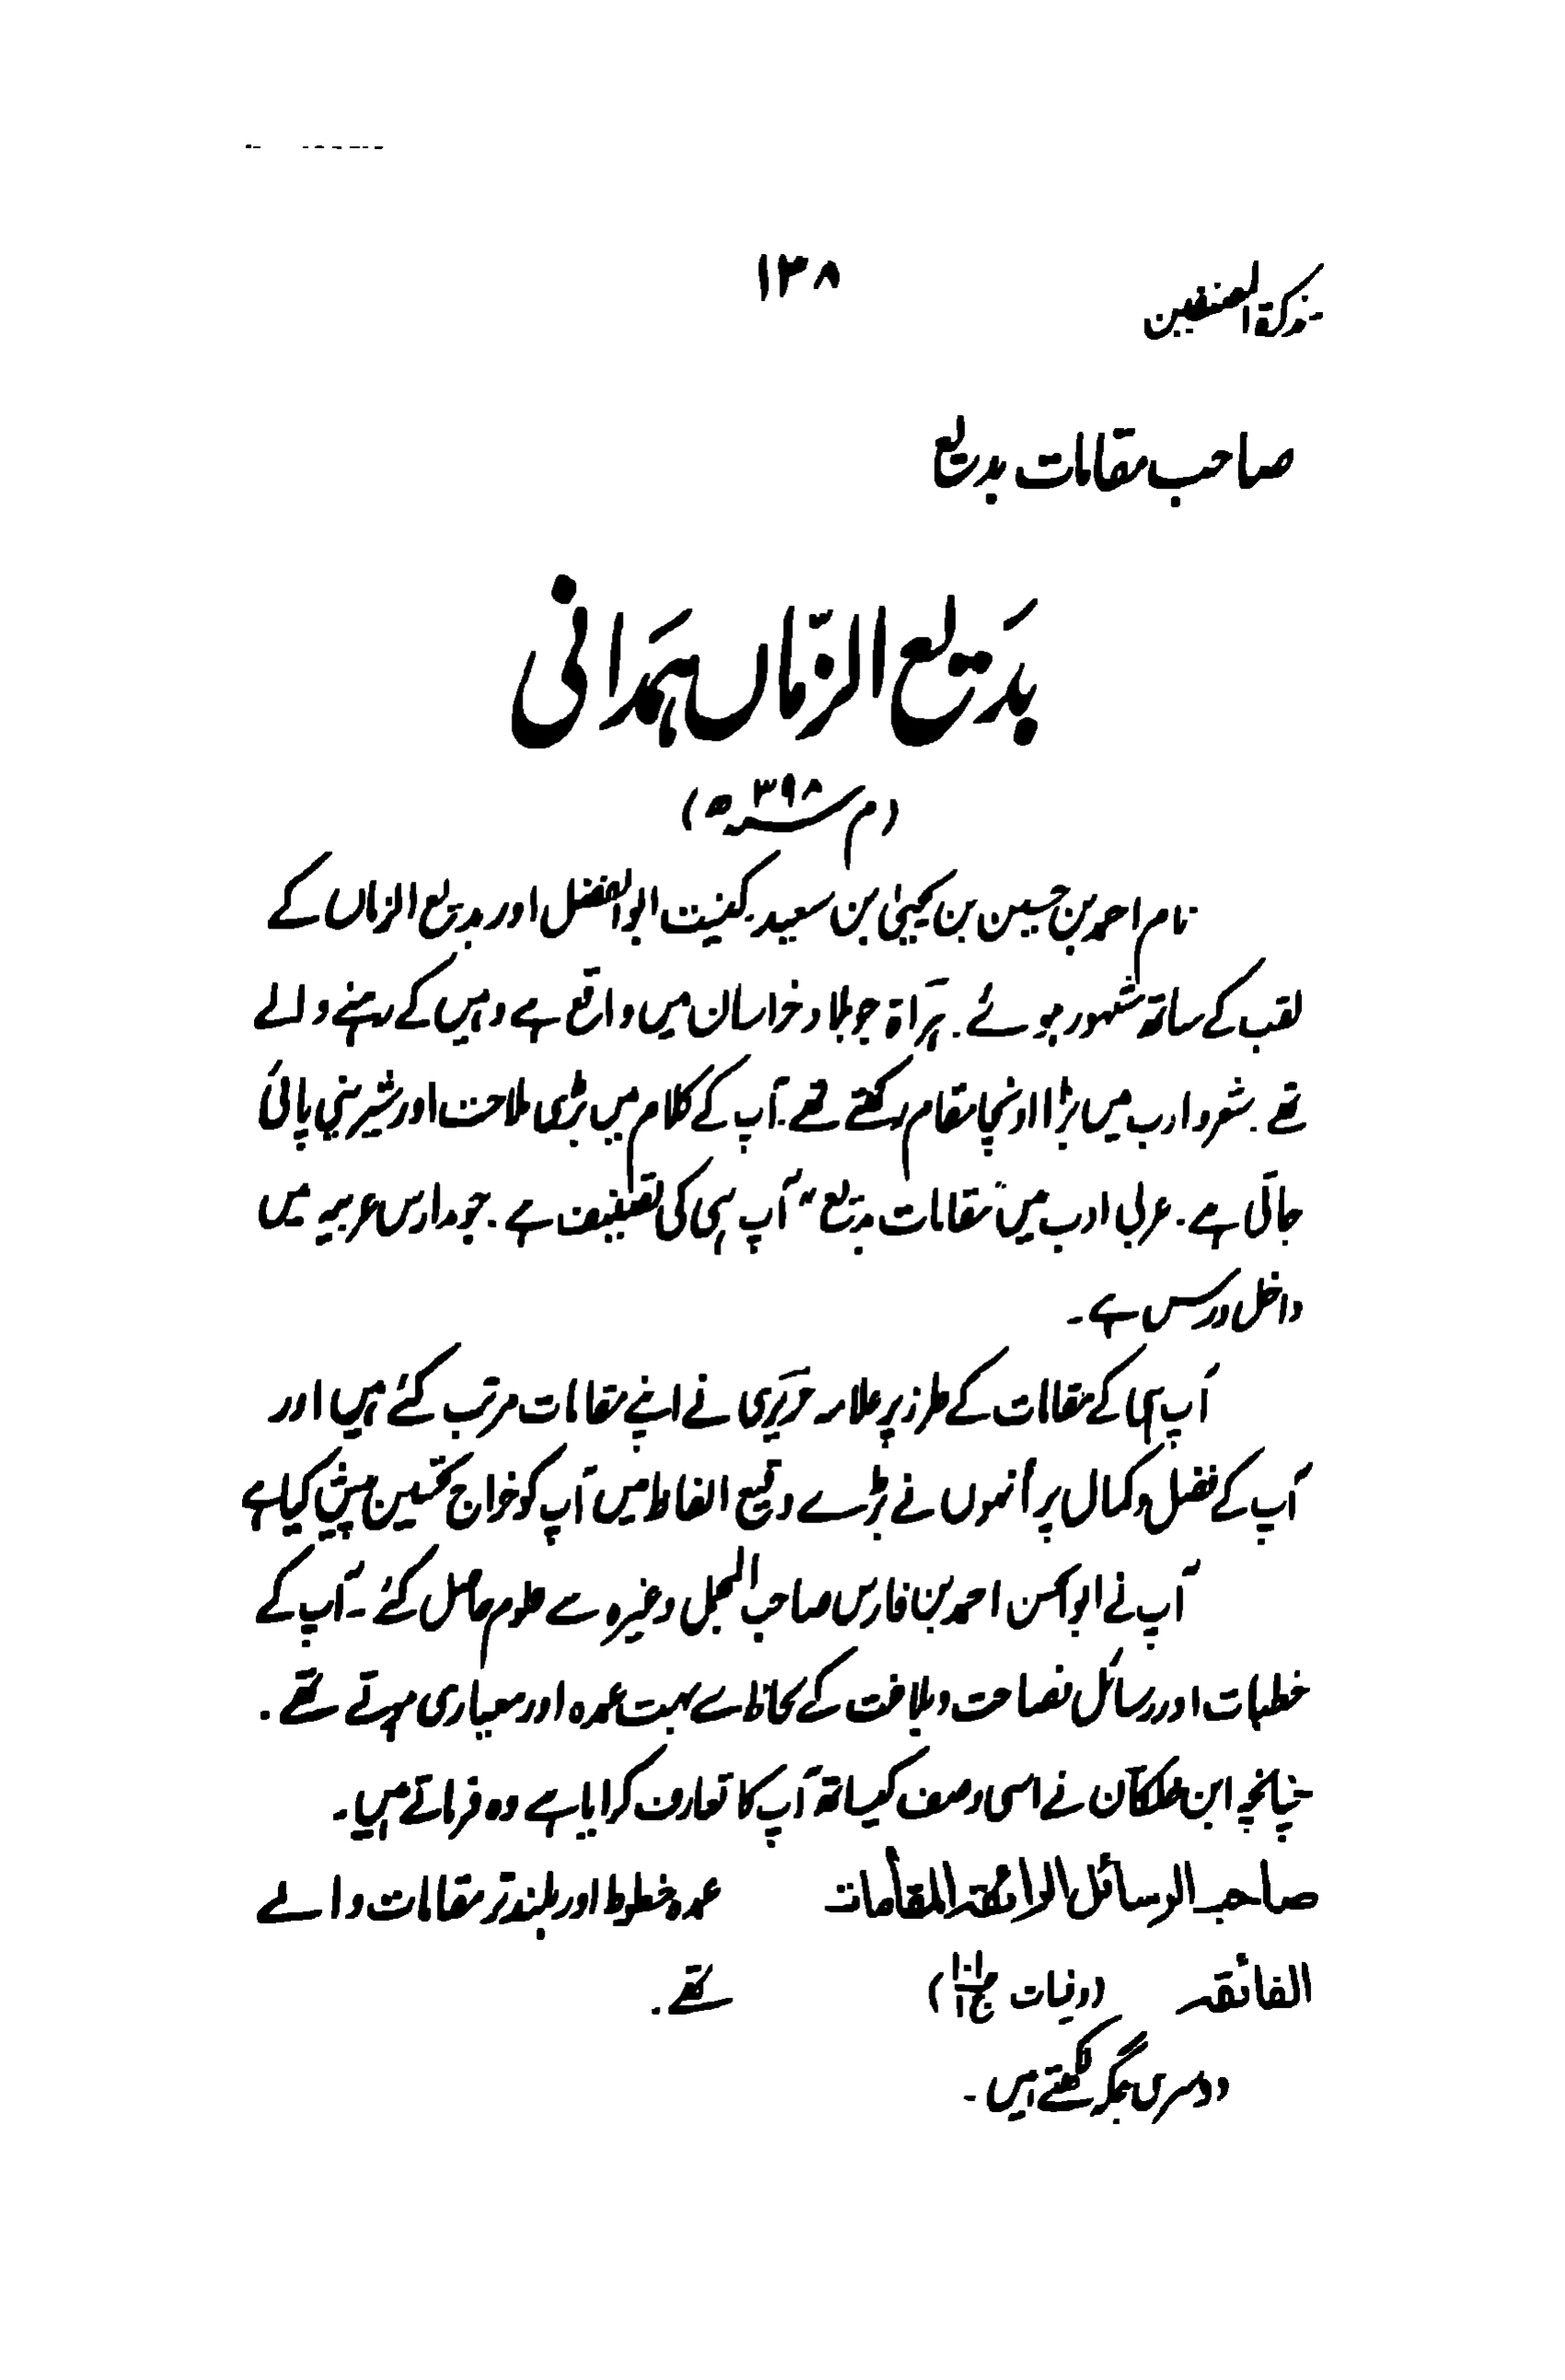 تذکرۃ المصنفین
۱۳۸
صاحب مقامات بدیع
بدیع الزّماں ہمدانی
(م ۳۹۸ھ)
نام احمد بن حسین بن یحییٰ بن سعید۔ کنیت ابوالفضل اور بدیع الزماں کے
لقب کے ساتھ مشہور ہوئے۔ ہراۃ جو بلاد خراسان میں واقع ہے وہیں کے رہنے والے
تھے۔ شعر و ادب میں بڑا اونچا مقام رکھتے تھے۔ آپ کے کلام میں بڑی ملاحت اور شیرینی پائی
جاتی ہے۔ عربی ادب میں "مقامات بدیع" آپ ہی کی تصنیف ہے۔ جو مدارس عربیہ میں
داخل درس ہے۔
آپ ہی کے مقامات کے طرز پر علامہ حریری نے اپنے مقامات مرتب کئے ہیں اور
آپ کے فضل و کمال پر اُنہوں نے بڑے وقیع الفاظ میں آپ کو خراج تحسین پیش کیا ہے
آپ نے ابوالحسن احمد بن فارس صاحب المجمل وغیرہ سے علوم حاصل کئے۔ آپ کے
خطبات اور رسائل فصاحت و بلاغت کے لحاظ سے بہت عمدہ اور معیاری ہوتے تھے۔
چنانچہ ابن خلکان نے اسی وصف کیساتھ آپ کا تعارف کرایا ہے وہ فرماتے ہیں۔
صاحب الرسائل الرائقۃ المقامات
الفائقہ (وفیات ج۱)
عمدہ خطوط اور بلند تر مقامات والے
تھے۔
دوسری جگہ لکھتے ہیں۔